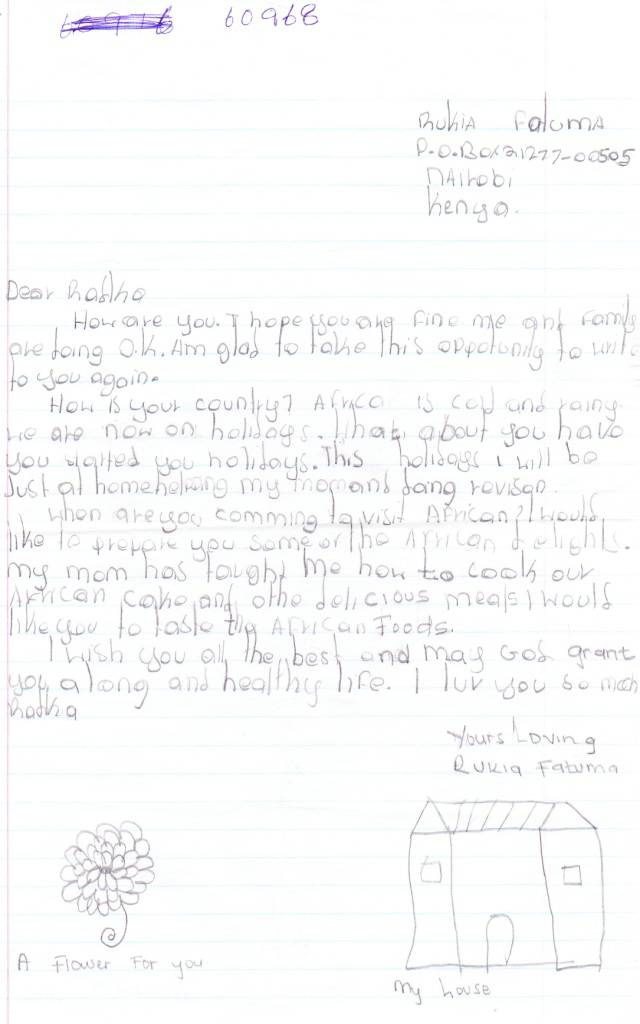 60968
RUKIA Fatuma
P.O.Box 21277-00505
NAIrobi
Kenya.
Dear Radka
How are you. I hope you are fine me and Family
are doing O.K. Am glad to take this oppotunity to write
to you again.
How is your country? Africa is cold and rainy.
we are now on holidays. What about you have
you started you holidays. This holidays I will be
Just at home helping my mom and doing revison.
when are you comming to visit African? I would
like to prepare you some of the African delights.
my mom has taught me how to cook our
African cake and othe delicious meals I would
like you to taste the African Foods.
I wish you all the best and may God grant
you a long and healthy life. I luv you so much
Radka
Yours Loving
RUKIA Fatuma
A Flower For you
My house